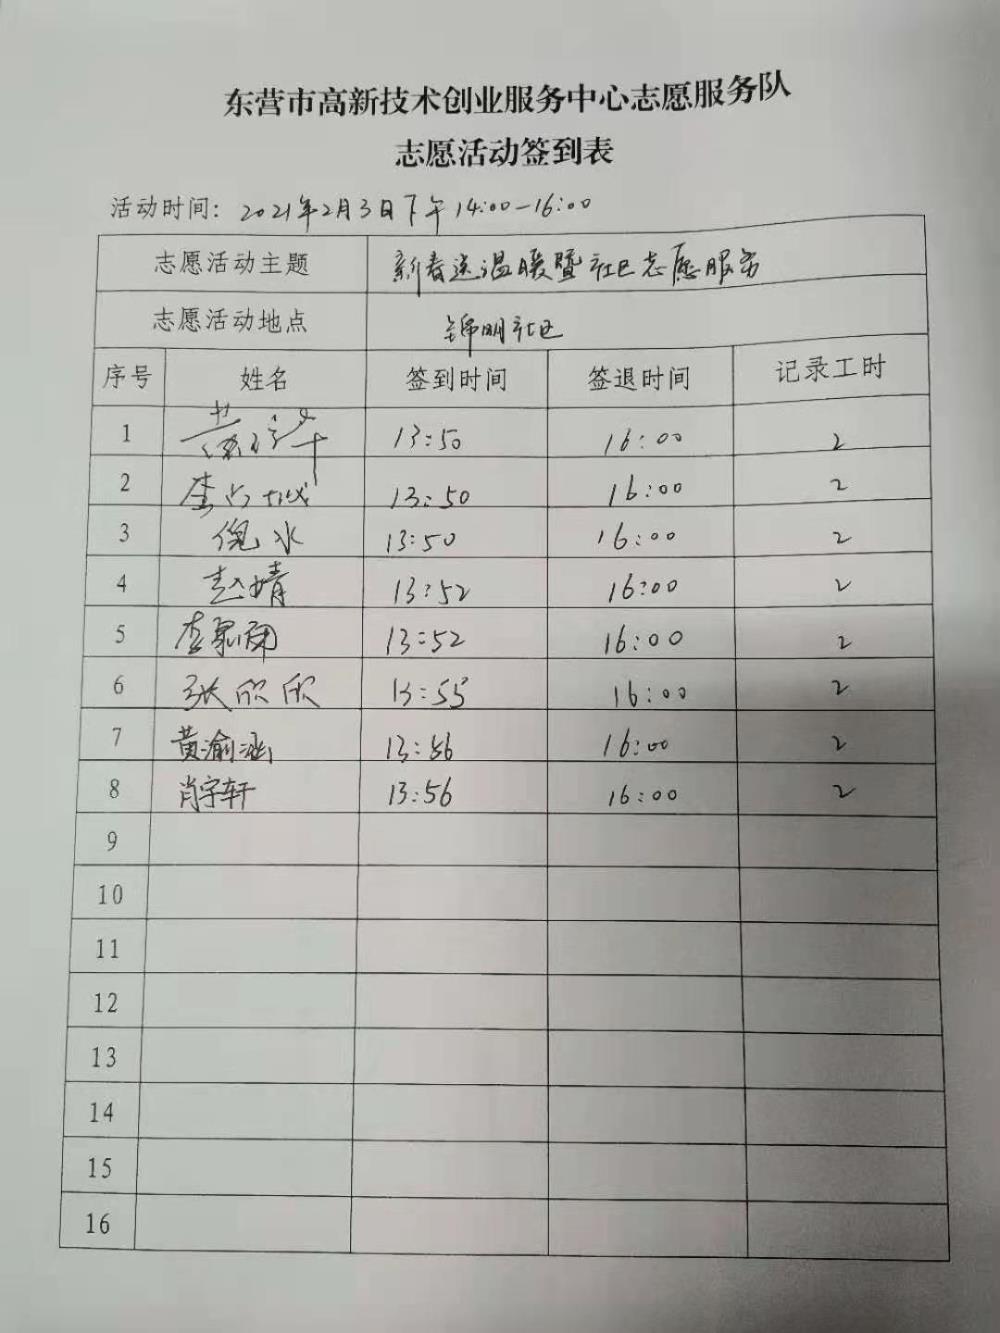 东营市高新技术创业服务中心志愿服务队
志愿活动签到表
活动时间：2021年2月3日下午14:00-16:00
志愿活动主题 新春送温暖暨社区志愿服务
志愿活动地点 锦明社区
序号 姓名 签到时间 签退时间 记录工时
1 13:50 16:00 2
2 13:50 16:00 2
3 倪冰 13:50 16:00 2
4 赵婧 13:52 16:00 2
5 13:52 16:00 2
6 张欣欣 13:55 16:00 2
7 黄渝涵 13:56 16:00 2
8 肖宇轩 13:56 16:00 2
9
10
11
12
13
14
15
16